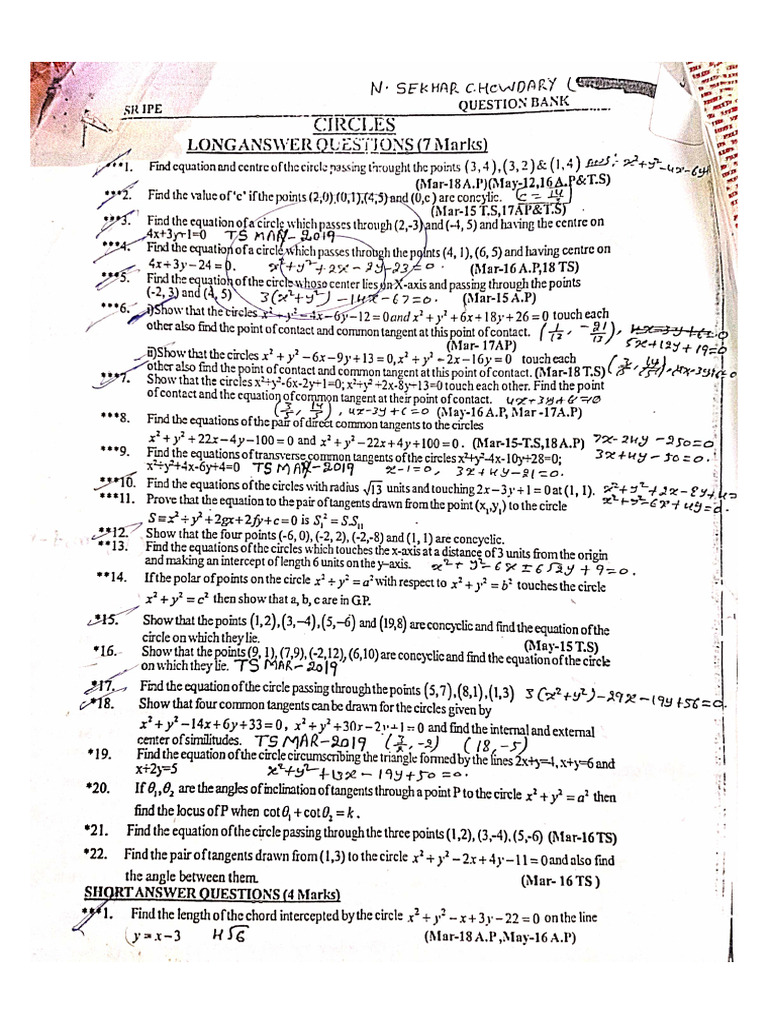 N. SEKHAR CHOWDARY (
SR IPE QUESTION BANK
CIRCLES
LONGANSWER QUESTIONS (7 Marks)
***1. Find equation and centre of the circle passing throught the points (3, 4), (3, 2) & (1, 4) Ans: x²+y²-4x-6y+
(Mar-18 A.P)(May-12,16 A.P&T.S)
***2. Find the value of 'c' if the points (2,0),(0,1),(4,5) and (0,c) are concylic. (c = 14/3)
(Mar-15 T.S,17AP&T.S)
***3. Find the equation of a circle which passes through (2,-3) and (-4, 5) and having the centre on
4x+3y+1=0 TS MAR-2019
***4. Find the equation of a circle which passes through the points (4, 1), (6, 5) and having centre on
4x + 3y - 24 = 0. x²+y²+2x-2y-23=0. (Mar-16 A.P,18 TS)
***5. Find the equation of the circle whose center lies on X-axis and passing through the points
(-2, 3) and (4, 5) 3(x²+y²)-14x-67=0. (Mar-15 A.P)
***6. i)Show that the circles x² + y² - 4x - 6y - 12 = 0 and x² + y² + 6x + 18y + 26 = 0 touch each
other also find the point of contact and common tangent at this point of contact. (1/13, -21/13),
(Mar- 17AP) 5x+12y+19=0
ii)Show that the circles x² + y² - 6x - 9y + 13 = 0, x² + y² - 2x - 16y = 0 touch each
other also find the point of contact and common tangent at this point of contact. (Mar-18 T.S)
***7. Show that the circles x²+y²-6x-2y+1=0; x²+y²+2x-8y+13=0 touch each other. Find the point
of contact and the equation of common tangent at their point of contact. 4x-3y+6=0
(3/5, 14/5), 4x-3y+6=0 (May-16 A.P, Mar -17A.P)
***8. Find the equations of the pair of direct common tangents to the circles
x² + y² + 22x - 4y - 100 = 0 and x² + y² - 22x + 4y + 100 = 0. (Mar-15-T.S,18 A.P) 7x-24y-250=0
3x+4y-50=0.
***9. Find the equations of transverse common tangents of the circles x²+y²-4x-10y+28=0;
x²+y²+4x-6y+4=0 TS MAR-2019 x-1=0, 3x+4y-21=0.
***10. Find the equations of the circles with radius √13 units and touching 2x - 3y + 1 = 0 at (1, 1). x²+y²+2x-8y+4=
x²+y²-6x+4y=0.
***11. Prove that the equation to the pair of tangents drawn from the point (x₁,y₁) to the circle
S ≡ x² + y² + 2gx + 2fy + c = 0 is S₁² = S.S₁₁
**12. Show that the four points (-6, 0), (-2, 2), (-2,-8) and (1, 1) are concyclic.
**13. Find the equations of the circles which touches the x-axis at a distance of 3 units from the origin
and making an intercept of length 6 units on the y-axis. x²+y²-6x±6√2y+9=0.
**14. If the polar of points on the circle x² + y² = a² with respect to x² + y² = b² touches the circle
x² + y² = c² then show that a, b, c are in GP.
*15. Show that the points (1,2),(3,-4),(5,-6) and (19,8) are concyclic and find the equation of the
circle on which they lie. (May-15 T.S)
*16. Show that the points (9, 1), (7,9), (-2,12), (6,10) are concyclic and find the equation of the circle
on which they lie. TS MAR-2019
*17. Find the equation of the circle passing through the points (5,7), (8,1), (1,3) 3(x²+y²)-29x-19y+56=0.
*18. Show that four common tangents can be drawn for the circles given by
x² + y² - 14x + 6y + 33 = 0, x² + y² + 30x - 2y + 1 = 0 and find the internal and external
center of similitudes. TS MAR-2019 (3/2, -2) (18, -5)
*19. Find the equation of the circle circumscribing the triangle formed by the lines 2x+y=4, x+y=6 and
x+2y=5 x²+y²+13x-19y+50=0.
*20. If θ₁,θ₂ are the angles of inclination of tangents through a point P to the circle x² + y² = a² then
find the locus of P when cot θ₁ + cot θ₂ = k.
*21. Find the equation of the circle passing through the three points (1,2), (3,-4), (5,-6) (Mar-16 TS)
*22. Find the pair of tangents drawn from (1,3) to the circle x² + y² - 2x + 4y - 11 = 0 and also find
the angle between them. (Mar- 16 TS )
SHORT ANSWER QUESTIONS (4 Marks)
***1. Find the length of the chord intercepted by the circle x² + y² - x + 3y - 22 = 0 on the line
y = x - 3 4√6 (Mar-18 A.P ,May-16 A.P)